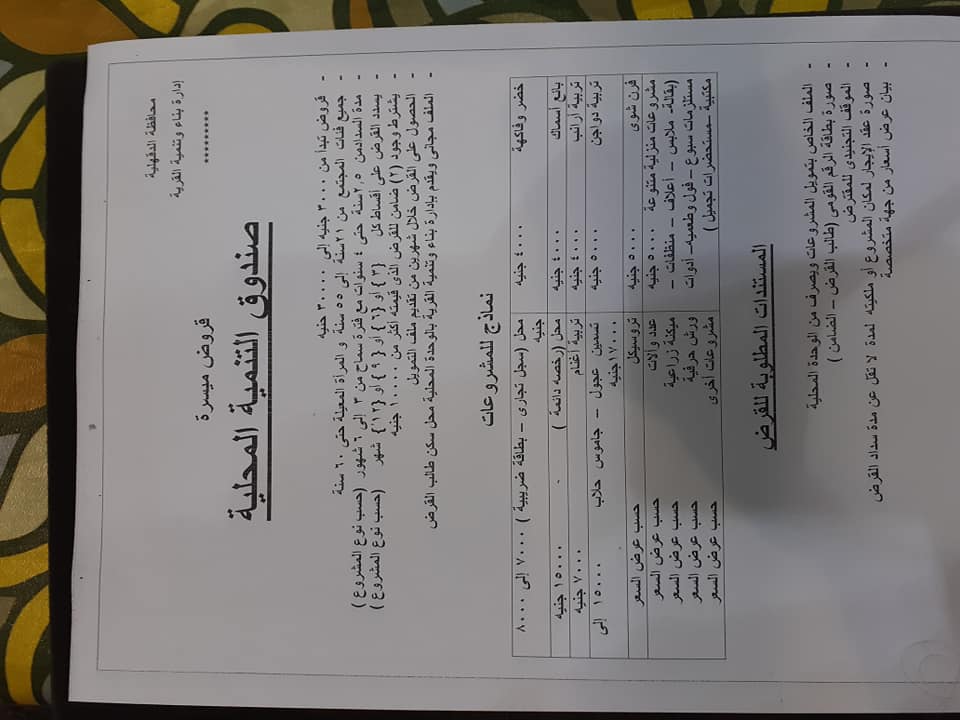 محافظة الدقهلية
إدارة بناء وتنمية القرية
*********
قروض ميسرة
صندوق التنمية المحلية
- قروض تبدأ من ٣٠٠٠ جنيه إلى ٣٠٠٠٠ جنيه
- جميع فئات المجتمع من ٢١ سنة إلى ٥٥ سنة و المرأة المعيلة حتى ٦٠ سنة
- مدة السدادمن ٢,٥سنة حتى ٤ سنوات مع فترة سماح من ٣ إلى ٦ شهور (حسب نوع المشروع )
- يسدد القرض على أقساط كل {٣} أو {٦} أو {٩} أو {١٢} شهر (حسب نوع المشروع )
- يشترط وجود (٢) ضامن للقرض الذى قيمته أكثر من ١٠٠٠٠ جنيه
- الحصول على القرض خلال شهرين من تقديم ملف التمويل
- الملف مجانى ويقدم بإدارة بناء وتنمية القرية بالوحدة المحلية محل سكن طالب القرض
نماذج للمشروعات
خضر وفاكهة ٤٠٠٠ جنيه محل (سجل تجارى – بطاقة ضريبية ) ٧٠٠٠ إلى ٨٠٠٠
جنيه
بائع أسماك ٤٠٠٠ جنيه محل (رخصه دائمة ) ١٥٠٠٠ جنيه
تربية أرانب ٤٠٠٠ جنيه تربية أغنام ٧٠٠٠ جنيه
تربية دواجن ٥٠٠٠ جنيه تسمين عجول – جاموس حلاب ١٥٠٠٠ إلى
١٧٠٠٠جنيه
فرن شوى ٥٠٠٠ جنيه تروسيكل حسب عرض السعر
مشروعات منزلية متنوعة ٥٠٠٠ جنيه عدد وآلات حسب عرض السعر
(بقالة- ملابس – أعلاف – منظفات – ميكنة زراعية حسب عرض السعر
مستلزمات سبوع – فول وطعميه- أدوات ورش حرفية حسب عرض السعر
مكتبية –مستحضرات تجميل ) مشروعات أخرى حسب عرض السعر
المستندات المطلوبة للقرض
- الملف الخاص بتمويل المشروعات ويصرف من الوحدة المحلية
- صورة بطاقة الرقم القومى (طالب القرض – الضامن )
- الموقف التجنيدى للمقترض
- صورة عقد الإيجار لمكان المشروع أو ملكيته لمدة لا تقل عن مدة سداد القرض
- بيان عرض أسعار من جهة متخصصة